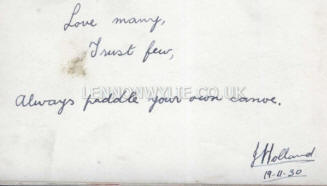 Love many,
Trust few,
LENNONWYLIE.CO.UK
Always paddle your own canoe.
J Holland
19.11.30